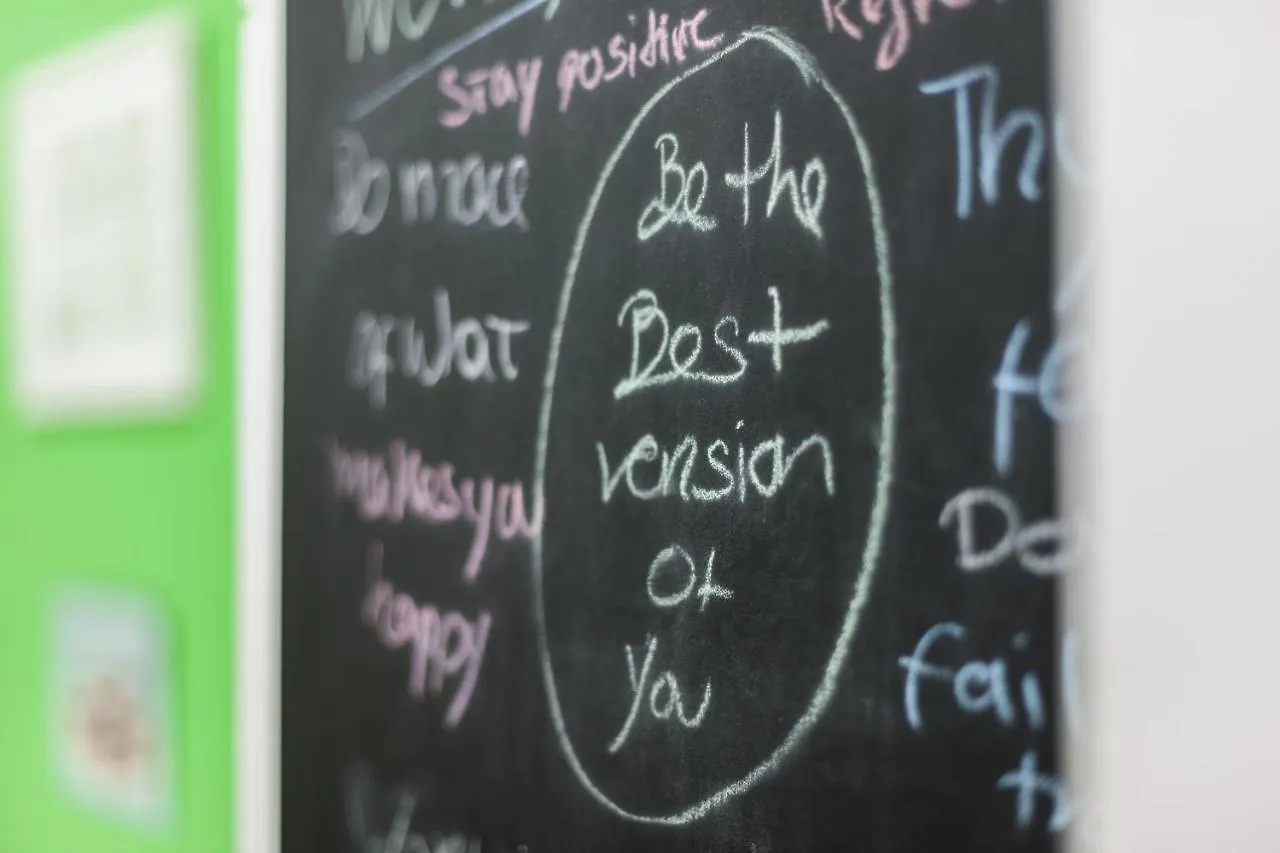 Stay positive
Do more
of wat
makes you
happy
Be the
Best
version
Of
you
Th
fo
Do
fail